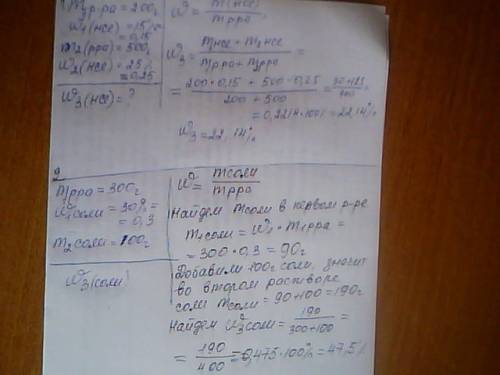 m₁р-ра = 200г
ω₁(нсе) = 15%
= 0,15
m₂(рра) = 500г
ω₂(нсе) = 25%
= 0,25
ω₃(нсе) = ?
ω = m(нсе) / mрра
ω₃ = m₁нсе + m₂нсе / m₁рра + m₂рра =
= 200 · 0,15 + 500 · 0,25 / 200 + 500 =
= 0,2214 · 100% = 22,14%
ω₃ = 22,14%
2
m₁рра = 300г
ω₁соли = 30% =
= 0,3
m₂соли = 100г
ω₃(соли)
ω = mсоли / mрра
Найдем mсоли в первом р-ре
m₁соли = ω₁ · m₁рра =
= 300 · 0,3 = 90г
Добавили 100г соли, значит
во втором растворе
соли mсоли = 90 + 100 = 190г
Найдем ω₃соли = 190 / 300 + 100 =
= 190 / 400 = 0,475 · 100% = 47,5%